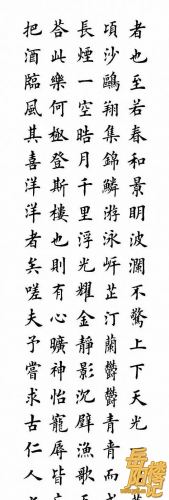 者也至若春和景明波瀾不驚上下天光
頃沙鷗翔集錦鱗游泳岸芷汀蘭欝欝青青而
長煙一空晧月千里浮光耀金靜影沉璧漁歌
答此樂何極登斯樓也則有心曠神怡寵辱皆
把酒臨風其喜洋洋者矣嗟夫予嘗求古仁人